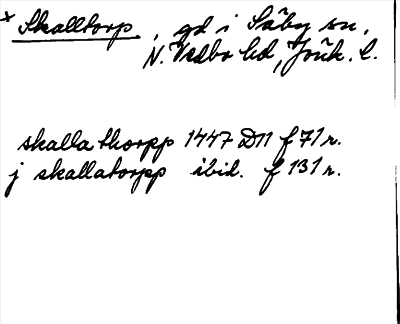 x Skalltorp, gd i Säby sn,
N. Vedbo hd, Jönk. l.
skalla thorpp 1447 D11 f 71 r.
j skallatorpp ibid. f 131 r.